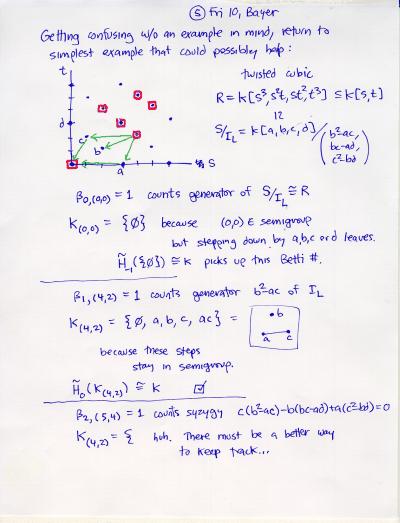 ⑤ Fri 10, Bayer
Getting confusing w/o an example in mind, return to
simplest example that could possibly help:
t
d
c
b
a
S
twisted cubic
R = k[s³, s²t, st², t³] ⊆ k[s,t]
S/I_L = k[a,b,c,d]/(b²-ac, bc-ad, c²-bd)
β₀,(0,0) = 1 counts generator of S/I_L ≅ R
K(0,0) = {∅} because (0,0) ∈ semigroup
but stepping down by a,b,c or d leaves.
H̃₋₁({∅}) ≅ K picks up this Betti #.
β₁,(4,2) = 1 counts generator b²-ac of I_L
K(4,2) = {∅, a, b, c, ac} =
b
a c
because these steps
stay in semigroup.
H̃₀(K(4,2)) ≅ K ☑
β₂,(5,4) = 1 counts syzygy c(b²-ac)-b(bc-ad)+a(c²-bd)=0
K(4,2) = { huh. There must be a better way
to keep track...